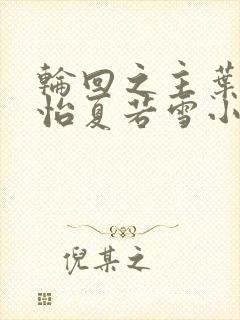 輪回之主葉
怡夏若雪小
倪某之